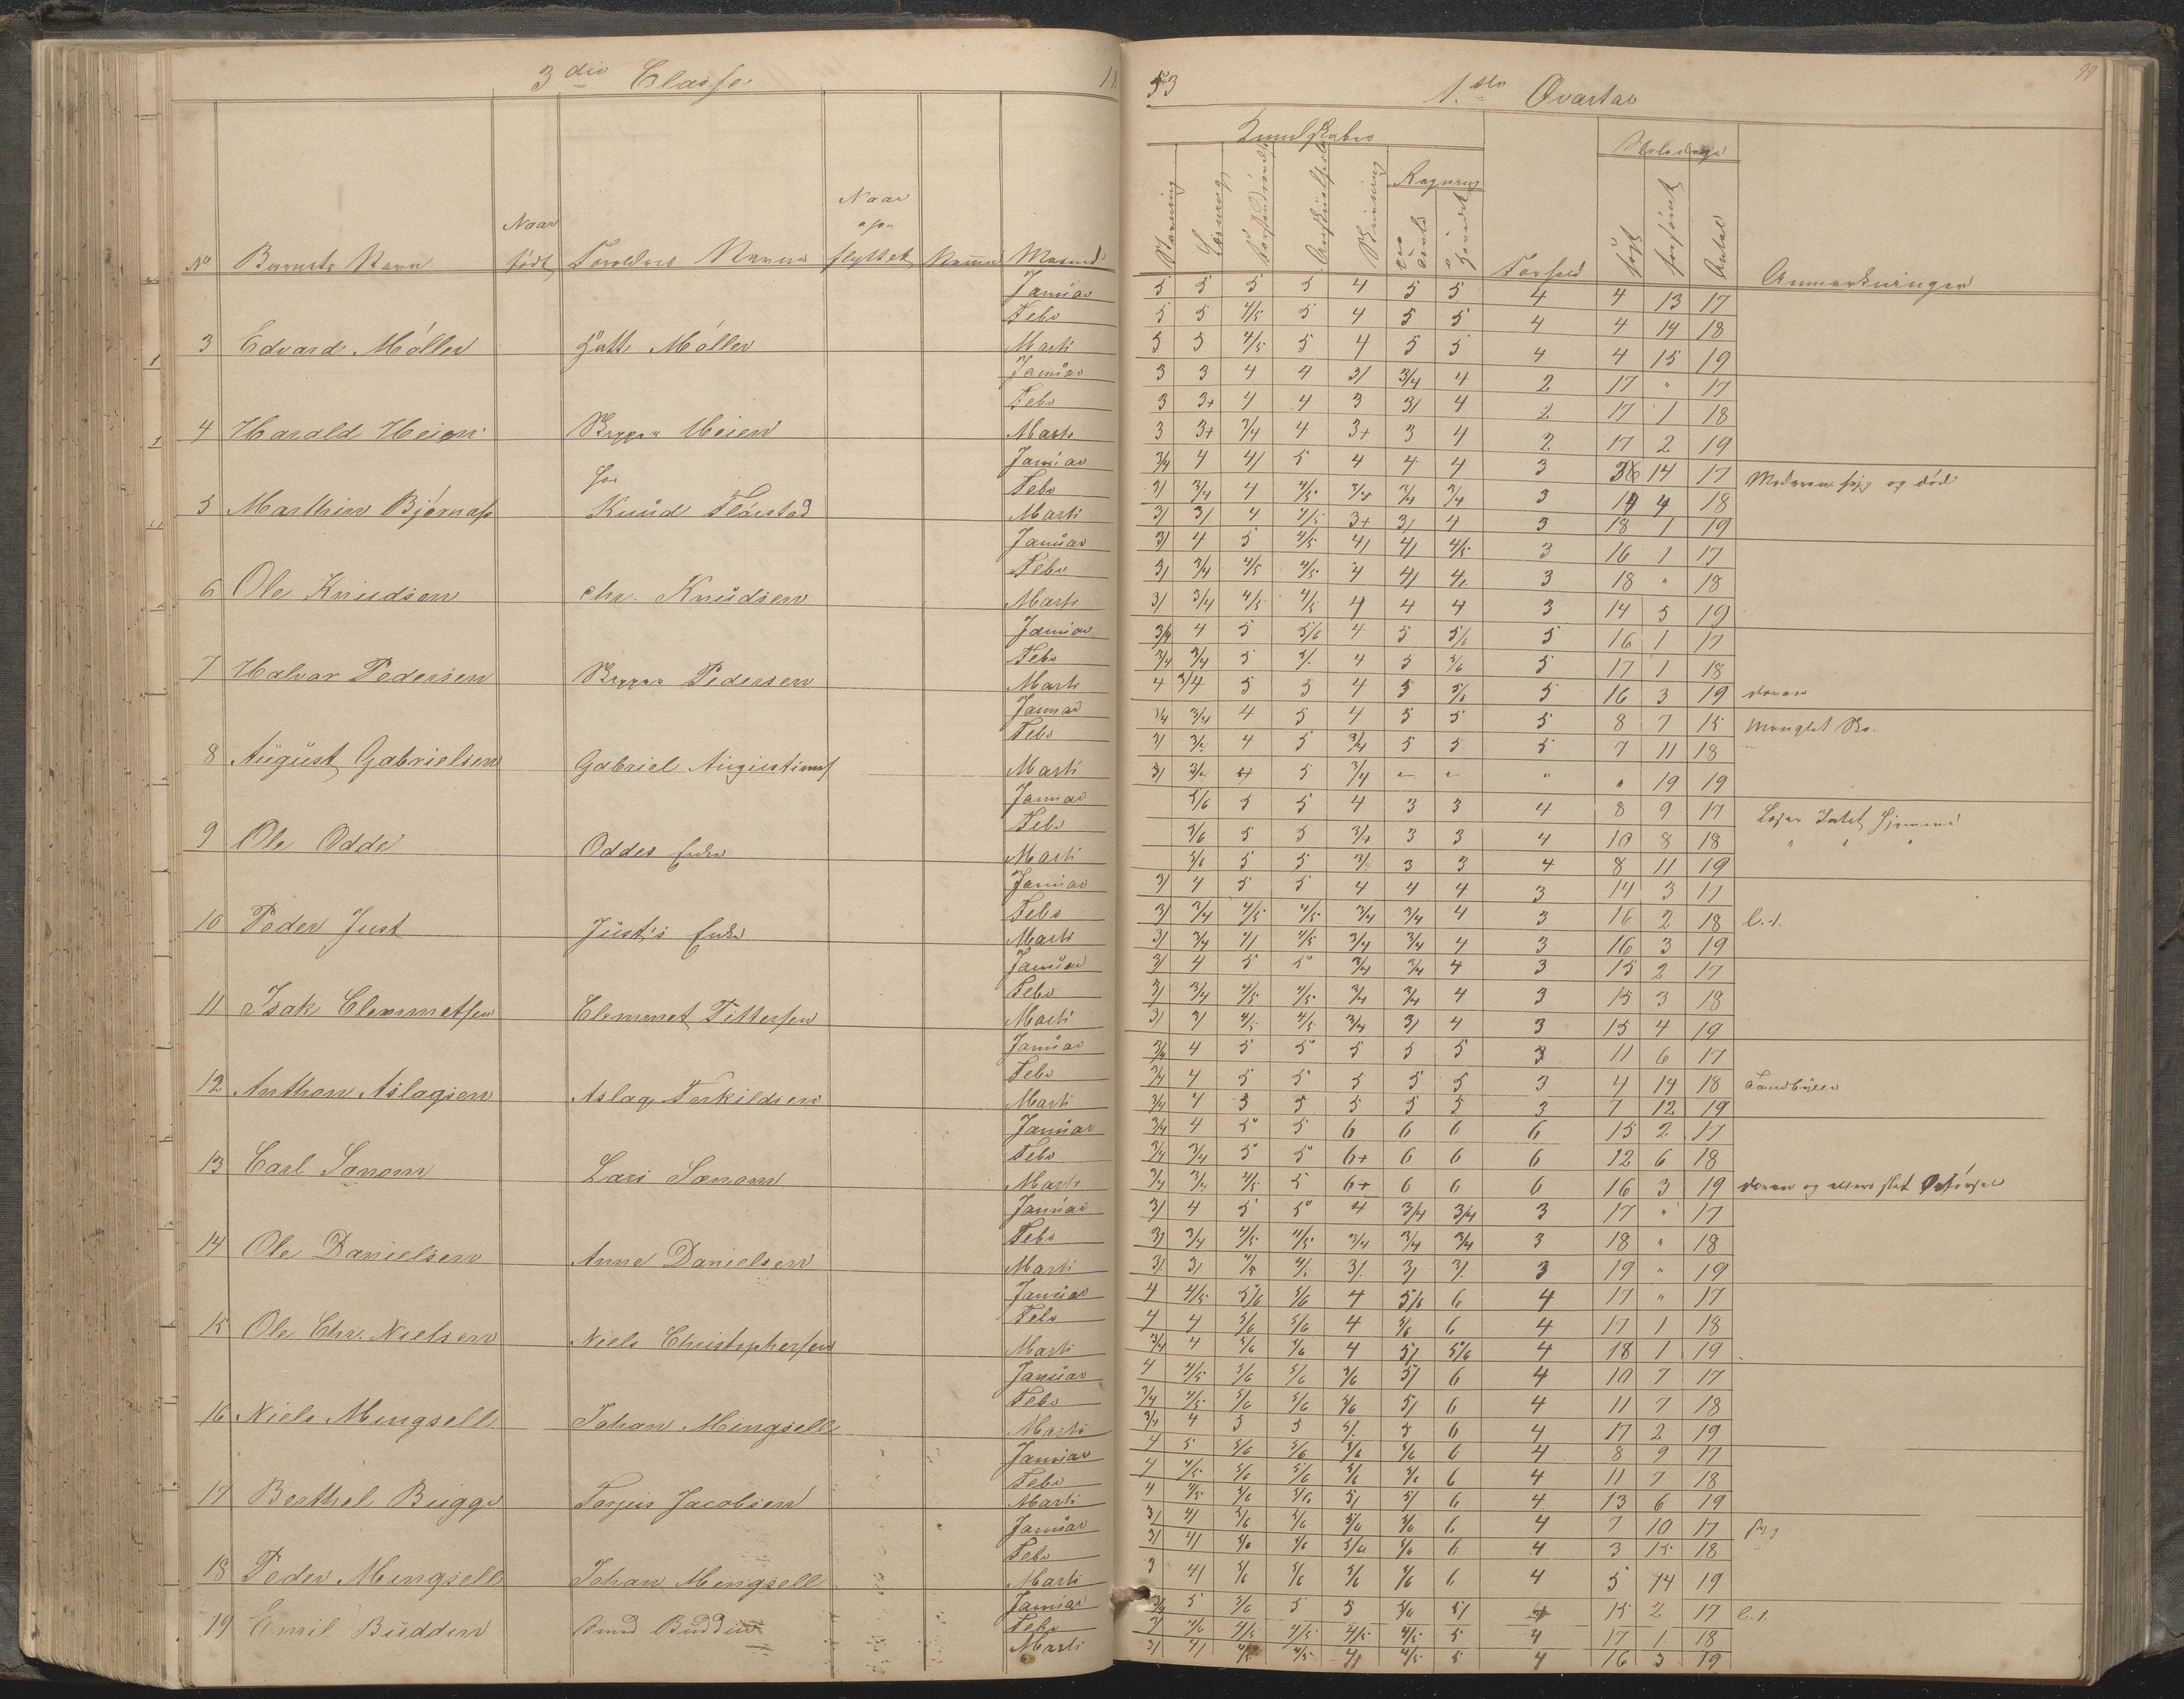 3die Classe
18 53
1ste Qvartal
99
Kundskaber
Skoledage
Regning
No
Barnets Navn
Naar født
Forældres Navne
Naar op- flyttet
Maaned
Læsning
Skrivning
Forhold
søgt
forsømt
Antal
Anmærkninger
3 Edvard Møller
Januar 5 5 5 5 4 5 5 4 4 13 17
Febr 5 5 4/5 5 4 5 5 4 4 14 18
Marti 5 5 4/5 5 4 5 5 4 4 15 19
4 Harald Heien
Januar 3 3 4 4 3/ 3/4 4 2 17 " 17
Febr 3 3+ 4 4 3 3/ 4 2 17 1 18
Marti 3 3+ 3/4 4 3+ 3 4 2 17 2 19
5 Marthin Bjørnass Knud Flørstad
Januar 3/4 4 4/ 5 4 4 4 3 14 17 og død
Febr 3/ 3/4 4 4/5 3/4 3/4 3/4 3 14 4 18
Marti 3/ 3/ 4 4/5 3+ 3/ 4 3 18 1 19
6 Ole Knudsen Chr. Knudsen
Januar 3/ 4 5 4/5 4/ 4/ 4/5 3 16 1 17
Febr 3/ 3/4 4/5 4/5 4 4/ 4/ 3 18 " 18
Marti 3/ 3/4 4/5 4/5 4 4 4 3 14 5 19
7 Halvor Pedersen Pedersen
Januar 3/4 4 5 5/6 4 5 5/6 5 16 1 17
Febr 3/4 3/4 5 5/ 4 5 5/6 5 17 1 18
Marti 4 3/4 5 5 4 5 5/6 5 16 3 19 doven
8 August Gabrielsen Gabriel Augustinus
Januar 3/4 3/4 4 5 4 5 5 5 8 7 15 manglet Sko
Febr 3/ 3/4 4 5 3/4 5 5 5 7 11 18
Marti 3/ 4 5 3/4 " " " " 19 19
9 Ole Odde Oddes Enke
Januar 5/6 5 5 4 3 3 4 8 9 17
Febr 5/6 5 5 3/4 3 3 4 10 8 18 " " "
Marti 5/6 5 5 3/ 3 3 4 8 11 19
10 Peder Just Just's Enke
Januar 3/ 4 5 5 4 4 4 3 14 3 17
Febr 3/ 3/4 4/5 4/5 3/4 3/4 4 3 16 2 18
Marti 3/ 3/4 4/ 4/5 3/4 3/4 4 3 16 3 19
11 Isak Clemmetsen Clemmet Pettersen
Januar 3/ 4 5 5 3/4 3/4 4 3 15 2 17
Febr 3/ 3/4 4/5 4/5 3/4 3/4 4 3 15 3 18
Marti 3/ 3/ 4/5 4/5 3/4 3/ 4 3 15 4 19
12 Anthon Aslagsen Aslag Terkildsen
Januar 3/4 4 5 5 5 5 5 3 11 6 17
Febr 3/4 4 5 5 5 5 5 3 4 14 18
Marti 3/4 4 5 5 5 5 5 3 7 12 19
13 Carl Sanom Lars Sanom
Januar 3/4 4 5 5 6 6 6 6 15 2 17
Febr 3/4 3/4 5 5 6+ 6 6 6 12 6 18
Marti 3/4 3/4 4/5 5 6+ 6 6 6 16 3 19 doven og
14 Ole Danielsen Anne Danielsen
Januar 3/ 4 5 5 4 3/4 3/4 3 17 " 17
Febr 3/ 3/4 4/5 4/5 3/4 3/4 3/4 3 18 " 18
Marti 3/ 3/ 4/5 4/5 3/ 3/ 3/ 3 19 " 19
15 Ole Chr. Nielsen Niels Christophersen
Januar 4 4/5 5/6 5/6 4 5/6 6 4 17 " 17
Febr 4 4 5/6 5/6 4 5/6 6 4 17 1 18
Marti 3/4 4 5/6 5/6 4 5/ 5/6 4 18 1 19
16 Niels Mengsell Johan Mengsell
Januar 4 4/5 5/6 5/6 5/6 5/ 6 4 10 7 17
Febr 3/4 4/5 5/6 5/6 5/6 5/ 6 4 11 7 18
Marti 3/4 4 5 5 5/ 5 6 4 17 2 19
17 Berthel Bugge Torjus Jacobsen
Januar 4 5 5/6 5/6 5/6 5/6 6 4 8 9 17
Febr 4 4/5 5/6 5/6 5/6 5/6 6 4 11 7 18
Marti 4 4/5 5/6 5/6 5/ 5/ 6 4 13 6 19
18 Peder Mengsell Johan Mengsell
Januar 3/ 4/ 5/6 5/6 5/6 5/6 6 4 7 10 17 syg
Febr 3/ 4/ 5/6 5/6 5/6 5/6 6 4 3 15 18
Marti 3 4/ 5/6 5/6 5/6 5/6 6 4 5 14 19
19 Emil Budden Budden
Januar 3/4 5 5/6 5 5 5/6 5/ 4 15 2 17
Febr 3/ 4/5 4/5 4/5 4/5 4/5 5 4 17 1 18
Marti 3/ 4/ 4/5 4/5 4/ 4/5 5 4 16 3 19